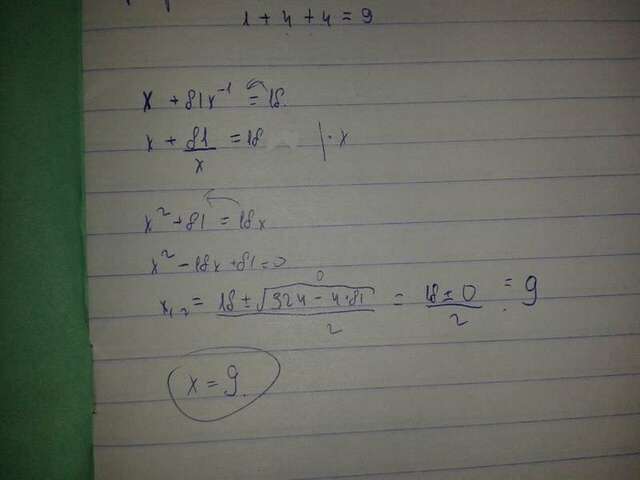 1 + 4 + 4 = 9
x + 81x⁻¹ = 18
x + 81/x = 18 | · x
x² + 81 = 18x
x² - 18x + 81 = 0
x₁,₂ = (18 ± √(324 - 4·81))/2 = (18 ± 0)/2 = 9
0
x = 9.